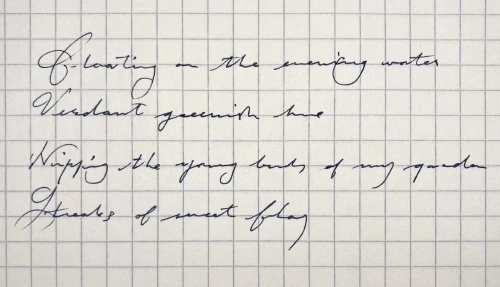 Floating on the evening water
Verdant greenish hue
Nipping the young buds of my garden
Streaks of sweet play